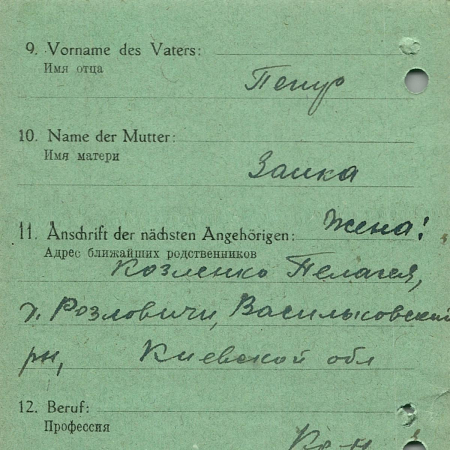 9. Vorname des Vaters:
Имя отца
10. Name der Mutter:
Имя матери
Заика
11. Anschrift der nächsten Angehörigen: Жена!
Адрес ближайших родственников
Козленко Пелагея,
Розловичи, Васильковский
рн, Киевской обл
12. Beruf:
Профессия